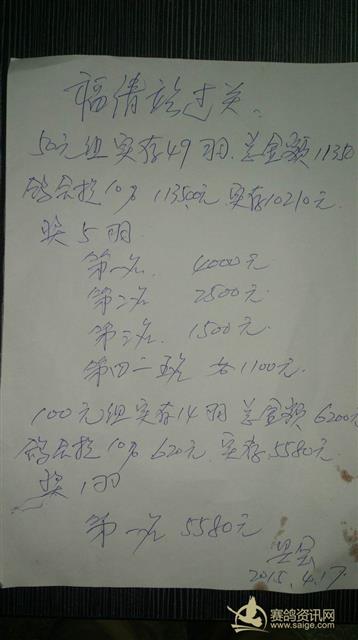 福清站过关.
50元组实存49羽.总金额11350
鸽会提10% 1135.00元.实存10210元.
奖5羽.
第一名. 4000元
第二名 2500元.
第三名. 1500元.
第四-五名 各1100元.
100元组实存14羽总金额6200元
鸽会提10% 620元.实存5580元.
奖1羽
第一名 5580元
2015.4.17.
赛鸽资讯网
www.saige.com